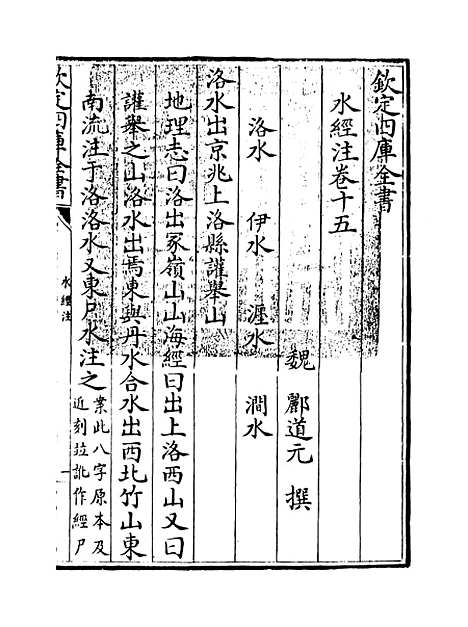 欽定四庫全書
水經注卷十五
魏 酈道元 撰
洛水 伊水 瀍水 澗水
洛水出京兆上洛縣讙舉山
地理志曰洛出冢嶺山山海經曰出上洛西山又曰
讙舉之山洛水出焉東與丹水合水出西北竹山東
南流注于洛洛水又東尸水注之案此八字原本及
近刻竝訛作經尸
欽定四庫全書
水經注
一